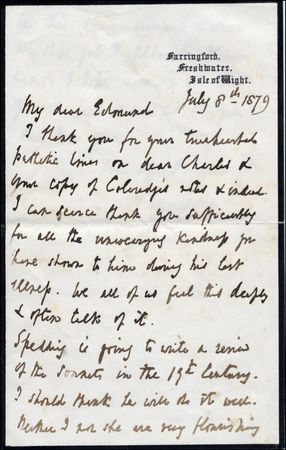 Farringford,
Freshwater,
Isle of Wight.
July 8th 1879
My dear Edmund
I thank you for your truehearted
pathetic lines on dear Charles &
your copy of Coleridge's notes & indeed
I can scarce thank you sufficiently
for all the unwearying kindness you
have shown to him during his last
illness. We all of us feel this deeply
& often talk of it.
Spedding is going to write a review
of the Sonnets in the 19th Century.
I should think he will do it well.
Neither I nor she are very flourishing